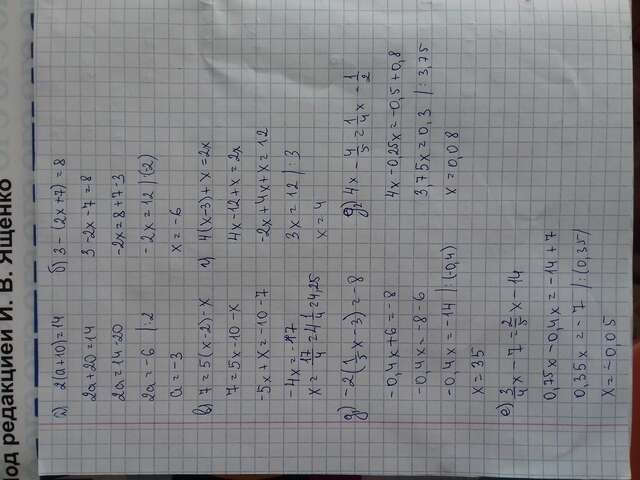 Под редакцией И. В. Ященко
а) 2(a+10)=14
2a+20=14
2a=14-20
2a=-6 |:2
a=-3
б) 3-(2x+7)=8
3-2x-7=8
-2x=8+7-3
-2x=12 |(-2)
x=-6
в) 7=5(x-2)-x
7=5x-10-x
-5x+x=-10-7
-4x=-17
x= 17/4 =4 1/4 =4,25
г) 4(x-3)+x=2x
4x-12+x=2x
-2x+4x+x=12
3x=12 |:3
x=4
д₁) -2(1/5 x-3)=-8
-0,4x+6=-8
-0,4x=-8-6
-0,4x=-14 |:(-0,4)
x=35
д₂) 4x-4/5=1/4 x-1/2
4x-0,25x=-0,5+0,8
3,75x=0,3 |:3,75
x=0,08
е) 3/4 x-7=2/5 x-14
0,75x-0,4x=-14+7
0,35x=-7 |:(0,35)
x=-0,05